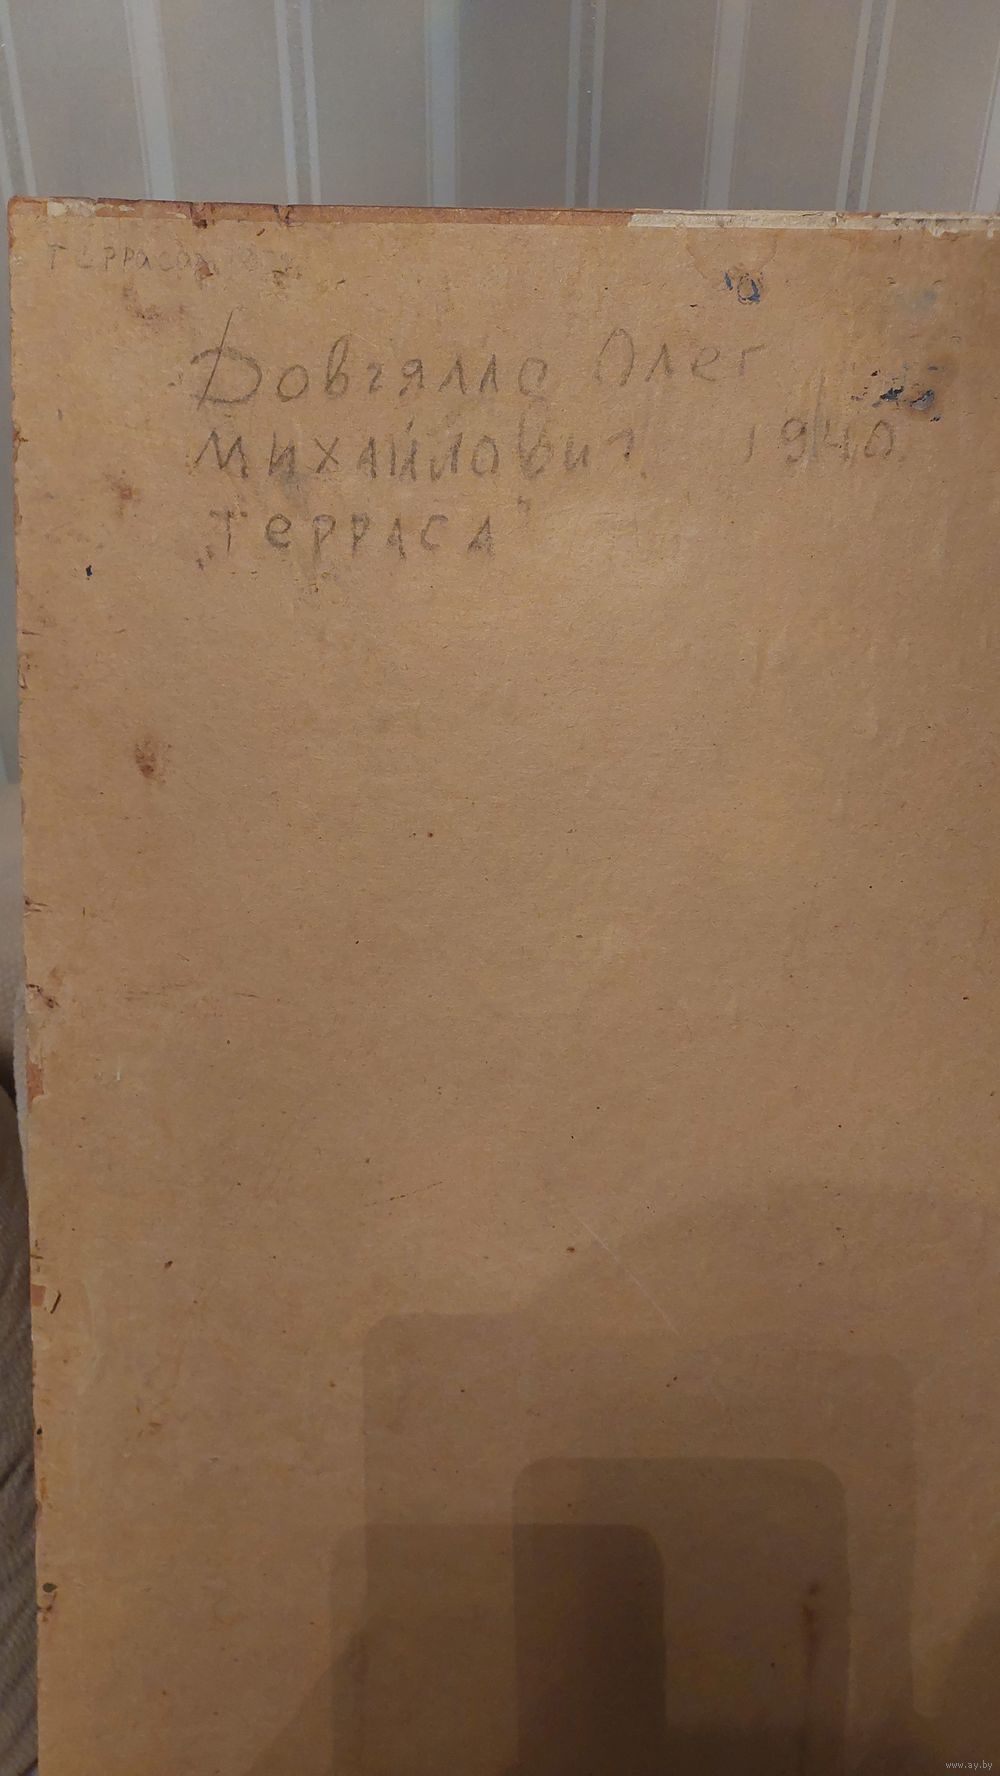 Довгялло Олег
Михайлович 1940
„Терраса"
www.ay.by